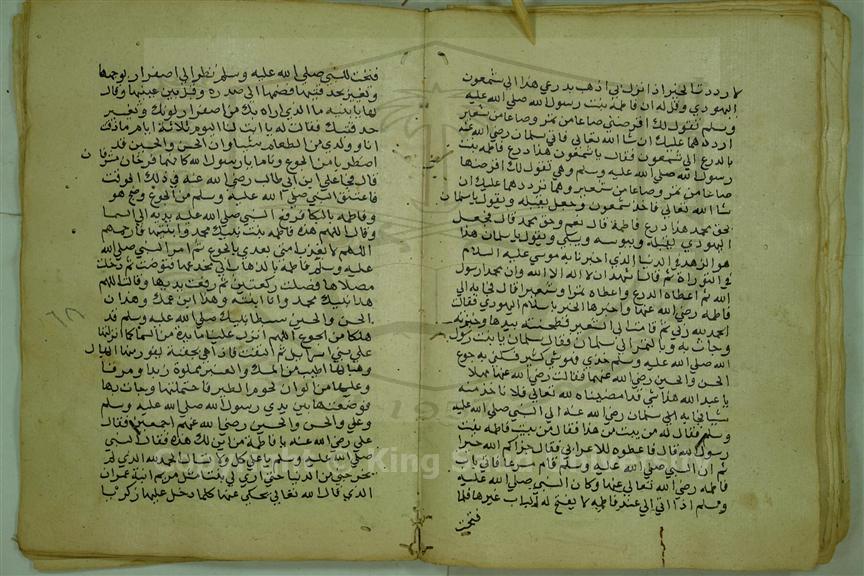 لا رددنا الخير اذا نزل بي اذهب بدرعي هذا الى شمعون
اليهودي وقل له ان فاطمة بنت رسول الله صلى الله عليه
وسلم تقول لك اقرضني صاعا من تمر وصاعا من شعير
ارددهما عليك ان شا الله تعالى فاتى سلمان رضي الله عنه
بالدرع الى شمعون فقال يا شمعون هذا درع فاطمة بنت
رسول الله صلى الله عليه وسلم وهي تقول لك اقرضها
صاعا من تمر وصاعا من شعير وهما نرددهما عليك ان
شا الله تعالى فاخذ شمعون وجعل يقبله ويقول يا سلمان
بحق محمد هذا درع فاطمة قال نعم وحق محمد قال فجعل
اليهودي يقبله ويبوسه ويبكي ويقول يا سلمان هذا
هو الزهد في الدنيا الذي اخبرنا به موسى عليه السلام
في التوراة ثم قال اشهد ان لا اله الا الله وان محمد رسول
الله ثم اعطاه الدرع واعطاه تمرا وشعيرا قال فجا به الى
فاطمة رضي الله عنها واخبرها الخبر باسلام اليهودي فقالت
الحمد لله ربي ثم قامت الى الشعير فطحنته بيدها وخبزته
وجات به وبالتمر الى سلمان فقال سلمان يا بنت رسول
الله صلى الله عليه وسلم خذي قرصين
الحسن والحسين رضي الله عنهما فقالت رضي الله عنها مهلا
يا عبد الله هذا شي قد امضيناه لله تعالى فلا ناخذ منه
شيا فاتى به الى سلمان رضي الله عنه الى النبي صلى الله عليه
وسلم فقال له من بيت من هذا فقال من بيت فاطمة بنت
رسول الله قال فاعطوه للاعرابي فقال جزاكم الله خيرا
ثم ان النبي صلى الله عليه وسلم قام مسرعا فاتى باب
فاطمة رضي الله تعالى عنها وكان النبي صلى الله عليه
وسلم اذا اتى الى عند فاطمة لا يفتح له الباب غيرها فلما
فتحت
فتحت للنبي صلى الله عليه وسلم نظر الى اصفرار لوجهها
وتغير حدقتيها فضمها الى صدره وقبل بين عينيها وقال
لها يا بنيه ما الذي اراه بك من اصفرار لونك وتغير
حدقتك فقالت له يا ابت لنا اليوم ثلاثة ايام ما ذقت
انا وولدي من الطعام شيا وان الحسن والحسين قد
اضطربا من الجوع وناما يا رسول الله كانهما فرخان منتوفان
قال فجا علي ابن ابي طالب رضي الله عنه في ذلك الوقت
فاعتنق النبي صلى الله عليه وسلم من الجوع وضج هو
وفاطمة بالبكا فرفع النبي صلى الله عليه يديه الى السما
وقال اللهم هذه فاطمة بنت نبيك محمد وابنتها فارحمهم
اللهم لا تعذب امتي بعدي بالجوع ثم امر النبي صلى الله
عليه وسلم فاطمة بالذهاب الى مخدعها فتوضت ثم دخلت
مصلاها فصلت ركعتين ثم رفعت يديها وقالت اللهم
هذا نبيك محمد وانا ابنته وهذا ابن عمك وهذان
الحسن والحسين سبطا نبيك صلى الله عليه وسلم قد
هلكا من الجوع اللهم انزل علينا مايدة من السما كما انزلتها
على بني اسرايل ثم التفتت فاذا هي بجفنة
اطيب من المسك والعنبر مملوة زبدا ومرقا
وعليها من الوان لحوم الطير فاحتملتها وجات بها
فوضعتها بين يدي رسول الله صلى الله عليه وسلم
وعلي والحسن والحسين رضي الله عنهم اجمعين فقال
علي رضي الله عنه يا فاطمة من اين لك هذه فقال النبي
صلى الله عليه وسلم يا علي كل الحمد لله الذي لم
يخرجني من الدنيا حتى ارى لي بنت مثل مريم ابنة عمران
الذي قال الله تعالى يحكي عنها كلما دخل عليها زكريا
١٢٨
Copyright © King Saud University
1957